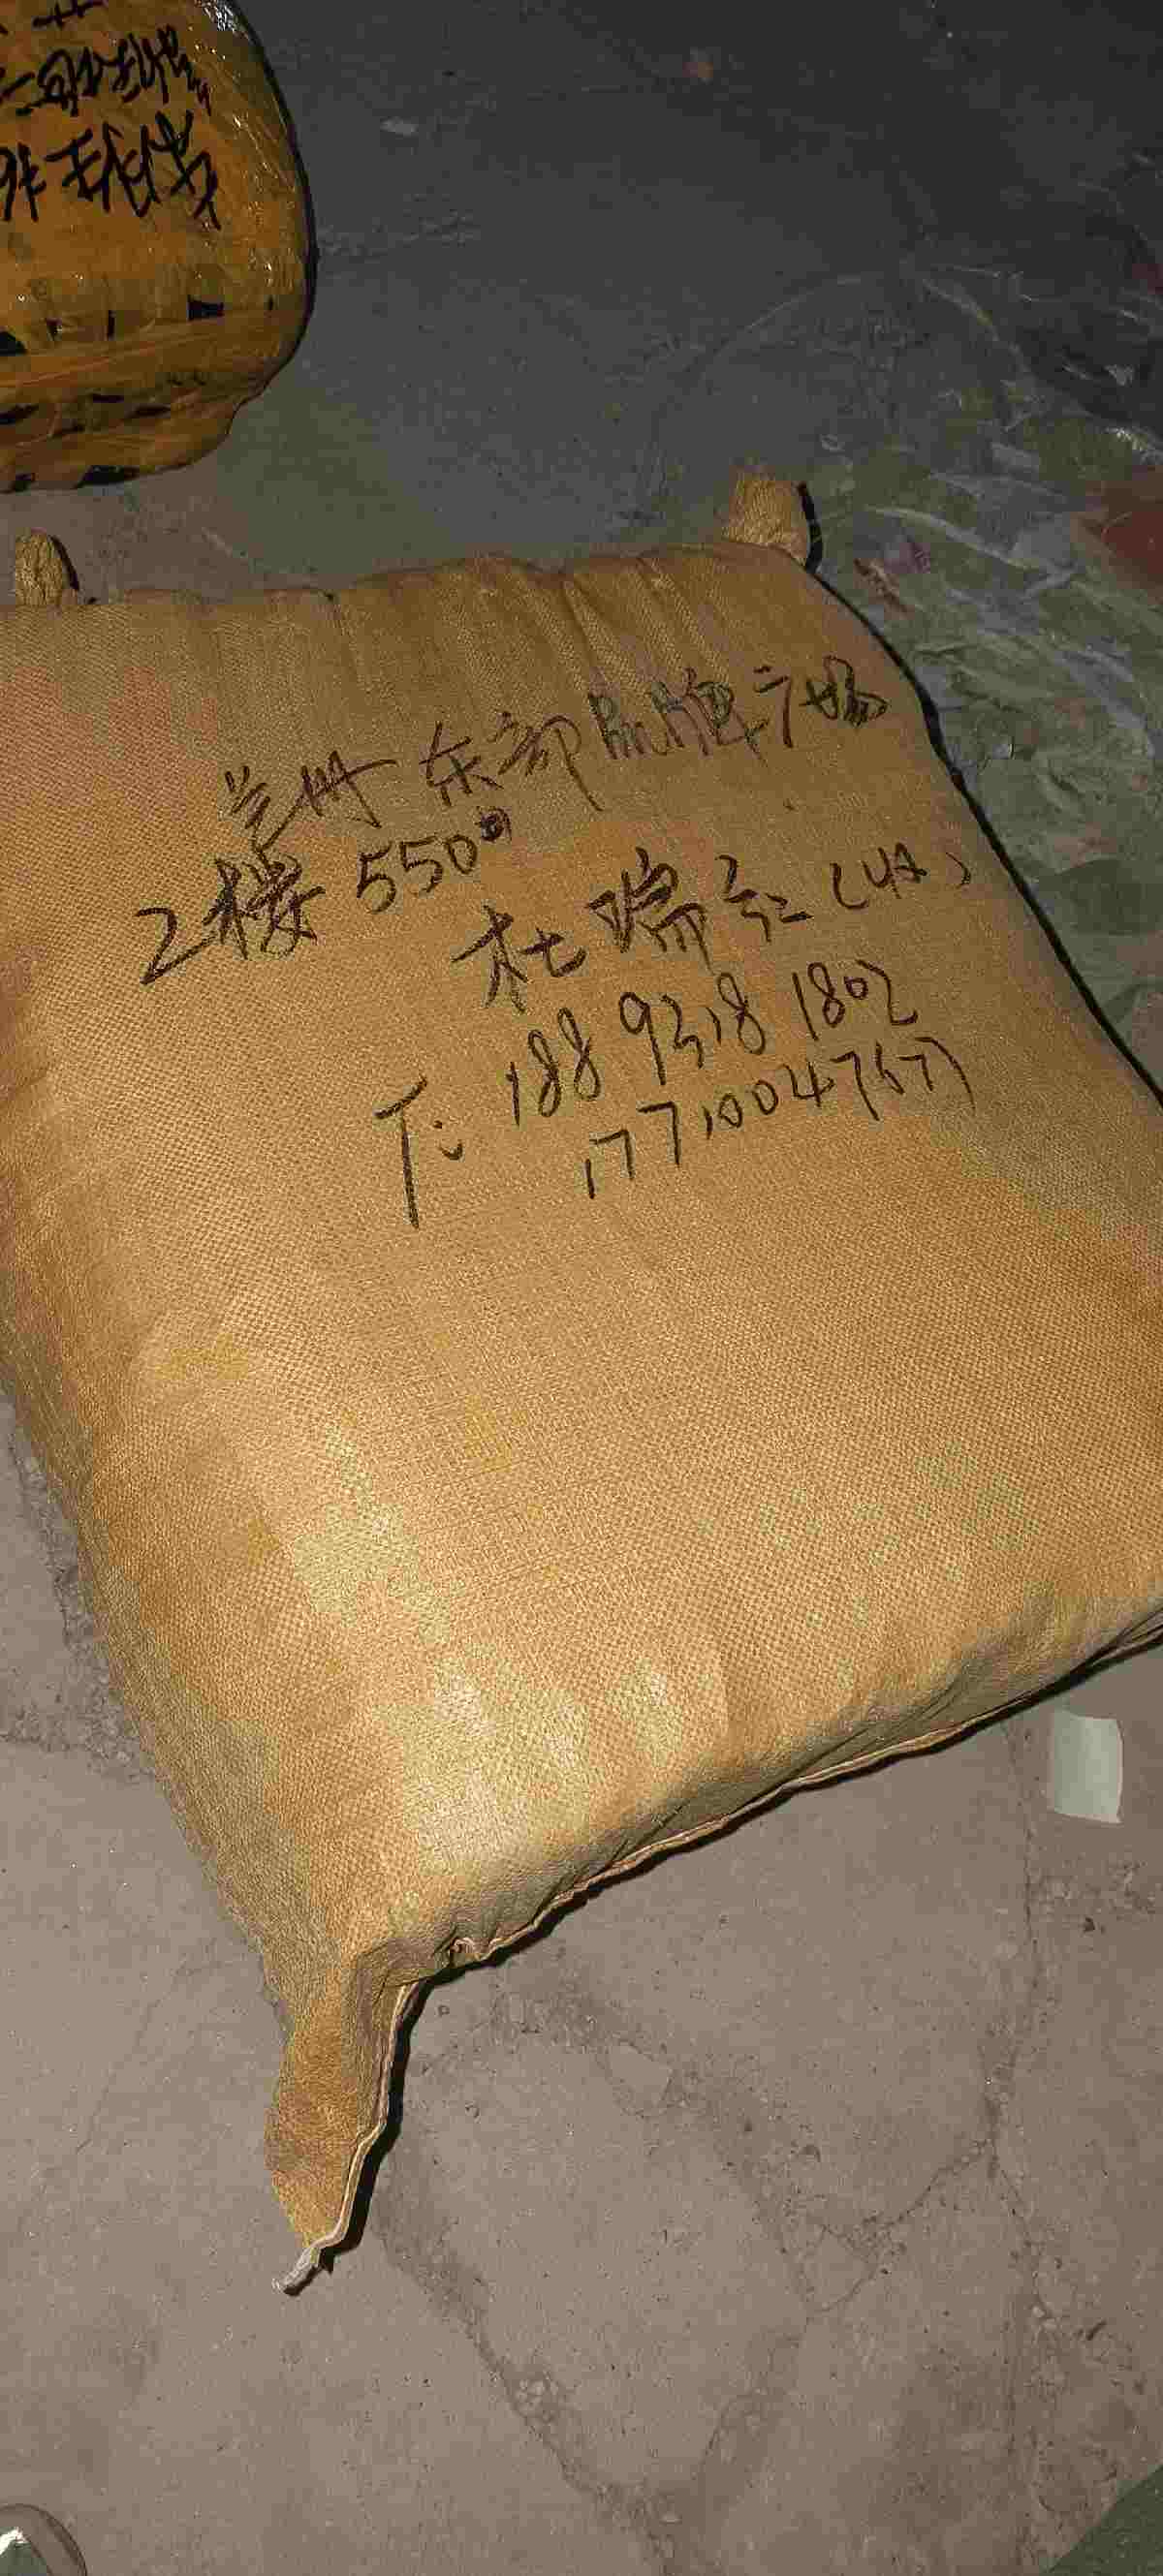 兰州东部品牌广场
2楼550号
杜瑞红(4件)
T: 188 9318 1802
17710047677